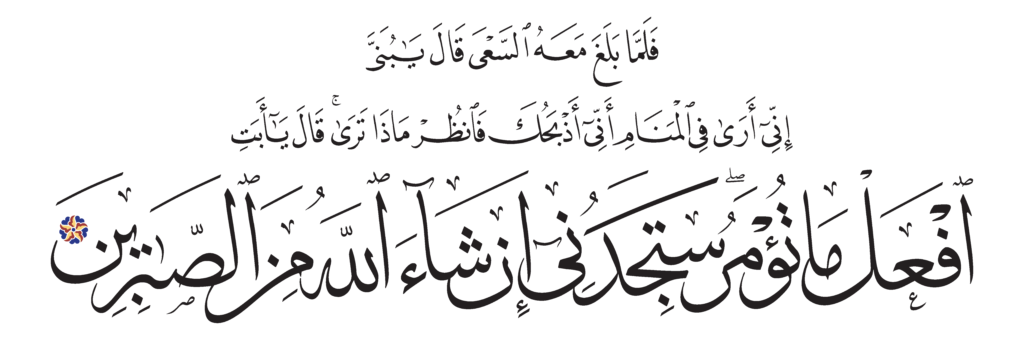 فَلَمَّا بَلَغَ مَعَهُ ٱلسَّعْىَ قَالَ يَـٰبُنَىَّ
إِنِّىٓ أَرَىٰ فِى ٱلْمَنَامِ أَنِّىٓ أَذْبَحُكَ فَٱنظُرْ مَاذَا تَرَىٰ ۚ قَالَ يَـٰٓأَبَتِ
ٱفْعَلْ مَا تُؤْمَرُ ۖ سَتَجِدُنِىٓ إِن شَآءَ ٱللَّهُ مِنَ ٱلصَّـٰبِرِينَ